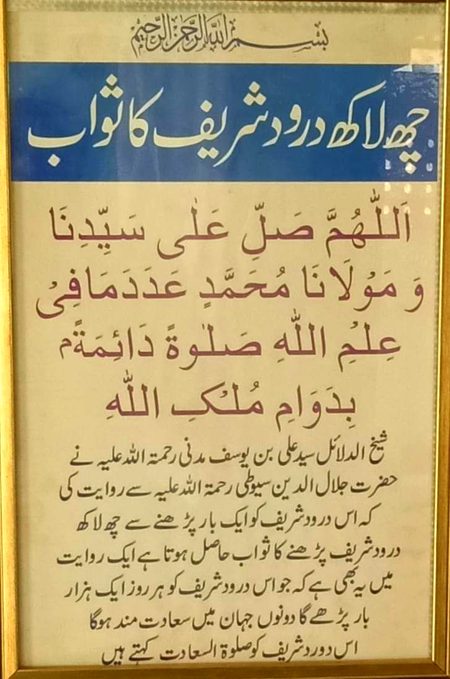 بسم الله الرحمن الرحيم
چھ لاکھ درود شریف کا ثواب
اَللّٰهُمَّ صَلِّ عَلٰى سَيِّدِنَا
وَ مَوْلَانَا مُحَمَّدٍ عَدَدَ مَا فِىْ
عِلْمِ اللهِ صَلٰوةً دَائِمَةًۢ
بِدَوَامِ مُلْكِ اللهِ
شیخ الدلائل سید علی بن یوسف مدنی رحمۃ اللہ علیہ نے
حضرت جلال الدین سیوطی رحمۃ اللہ علیہ سے روایت کی
کہ اس درود شریف کو ایک بار پڑھنے سے چھ لاکھ
درود شریف پڑھنے کا ثواب حاصل ہوتا ہے ایک روایت
میں یہ بھی ہے کہ جو اس درود شریف کو ہر روز ایک ہزار
بار پڑھے گا دونوں جہان میں سعادت مند ہوگا
اس دورد شریف کو صلوۃ السعادت کہتے ہیں